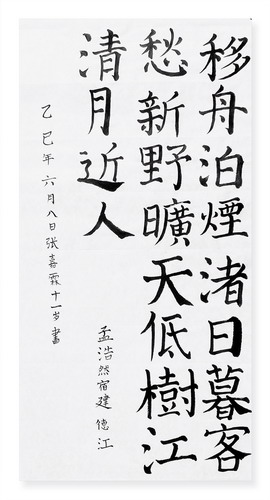 移舟泊煙渚日暮客
愁新野曠天低樹江
清月近人
孟浩然宿建德江
乙巳年六月八日张嘉霖十一岁書